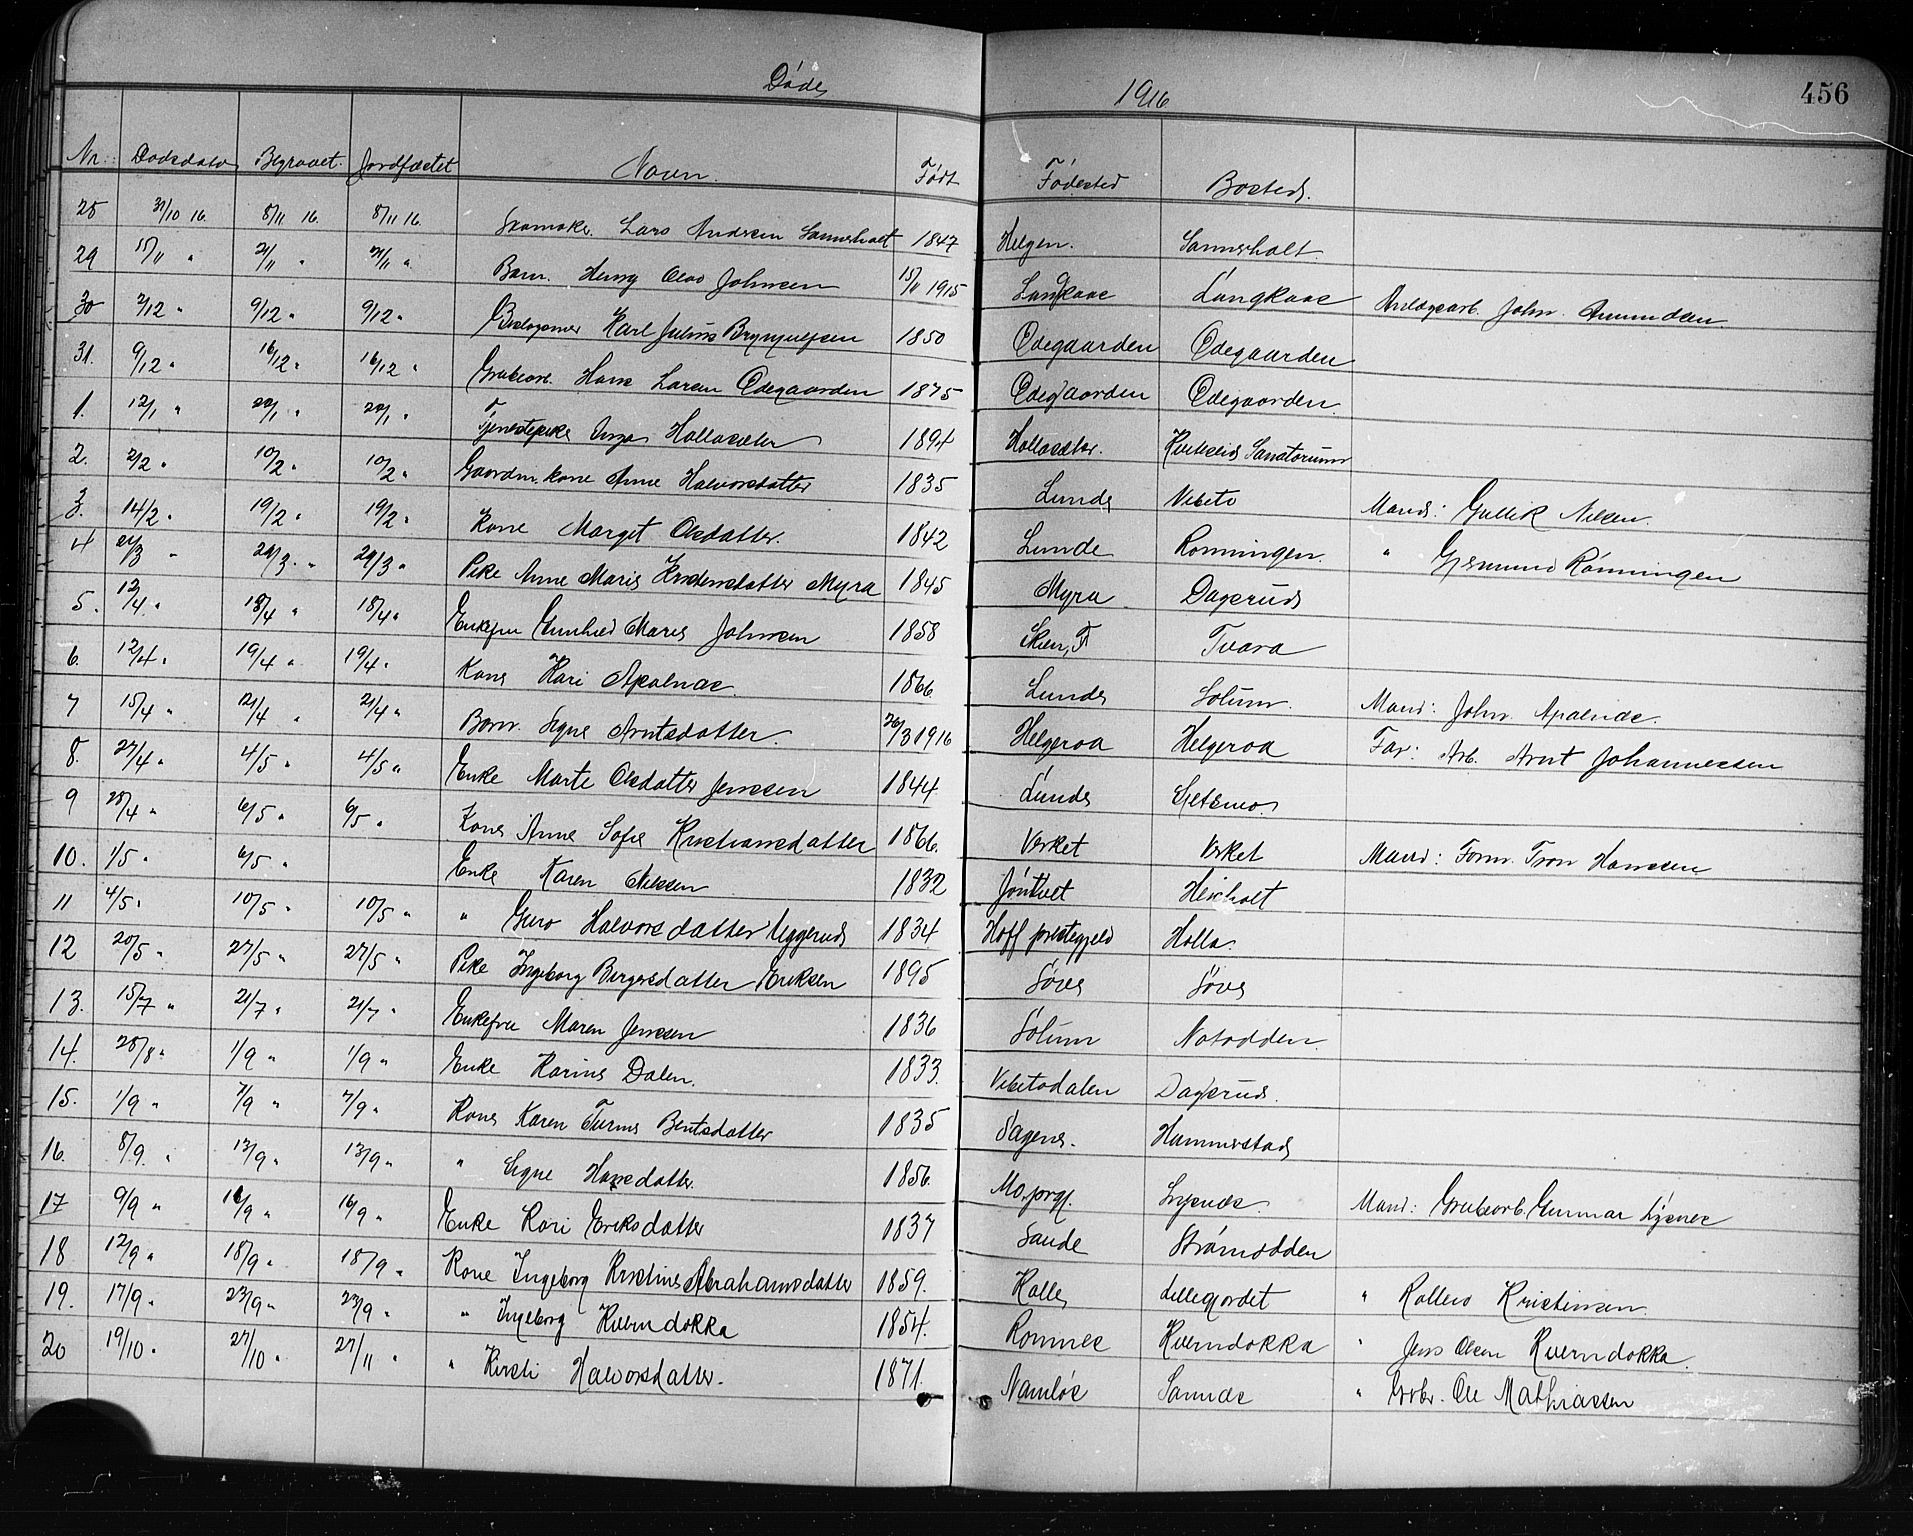 Døde 1916 456
Nr. Dødsdato Begravet Jordfæstet Navn. Født Fødested Bosted.
28 31/10 16. 8/11 16. 8/11 16. Skomaker Lars Andersen Sannerholt 1847 Helgen. Sannerholt.
29 15/11 " 21/11 " 21/11 " Barn. Henry Olav Johnsen 15/11 1915 Langkaas Langkaas Anlægsarb. John Amundsen
30 2/12 " 9/12 " 9/12 " Karl Julius Brynjulfsen 1850 Ødegaarden Ødegaarden
31. 9/12 " 16/12 " 16/12 " Grubearb. Hans Larsen Ødegaarden 1875 Ødegaarden Ødegaarden.
1. 12/1 " 20/1 " 20/1 " Tjenestepike Inga Hollasæter 1894 Hollasæter. Kviteseid Sanatorium
2. 2/2 " 10/2 " 10/2 " Gaardm. kone Anne Halvorsdatter 1835 Lunde Vibeto Mand: Gullik Nilsen.
3. 14/2 " 19/2 " 19/2 " Kone Margit Olsdatter. 1842 Lunde Rønningen. " Gjermund Rønningen
4 21/3 " 29/3 " 29/3 " Pike Anne Marie Kristensdatter Myra 1845 Myra Dagsrud
5. 12/4 " 18/4 " 18/4 " Enkefru Gunhild Maria Johnsen 1858 Skien, F Tvara
6. 12/4 " 19/4 " 19/4 " Kone Kari Apalnæs. 1866 Lunde Solum. Mand: John Apalnæs.
7 15/4 " 21/4 " 21/4 " Barn. Signe Arntsdatter. 26/3 1916 Helgeroa Helgeroa Far: Arb. Arnt Johannessen
8. 27/4 " 4/5 " 4/5 " Enke Marte Olsdatter Jenssen 1844. Lunde Gjetemo.
9 28/4 " 6/5 " 6/5 " Kone Anne Sofie Kristiansdatter 1866. Verket Verket Mand: Form. Tron Hanssen
10. 1/5 " 6/5 " Enke Karen Nilssen 1832 Jøntvet Heisholt
11 4/5 " 10/5 " 10/5 " " Guro Halvorsdatter Uggerud 1834 Hoff prestegjeld Holla.
12 20/5 " 27/5 " 27/5 " Pike Ingeborg Bergersdatter Eriksen 1895 Søve Søve
13. 15/7 " 21/7 " 21/7 " Enkefru Maren Jenssen 1836 Solum Notodden.
14. 28/8 " 1/9 " 1/9 " Enke Karine Dalen. 1833. Vibetodalen Dagsrud.
15. 1/9 " 7/9 " 7/9 " Kone Karen Turine Bentsdatter 1835 Sagene. Hammerstad
16. 8/9. " 13/9 " 13/9 " " Signe Hansdatter. 1856 Mo prgj. Lysnæs. Mand: Grubearb. Gunnar Lysnæs
17 9/9 " 16/9 " 16/9 " Enke Kari Eriksdatter 1837 Sande Strømodden
18. 12/9 " 18/9 " 18/9 " Kone Ingeborg Kristine Abrahamsdatter 1859. Kalle Lillegjordet " Rollev Kristensen
19. 17/9 " 23/9 " 23/9 " " Ingeborg Kverndokka 1854. Romnes Kverndokka " Jens Olsen Kverndokka.
20 19/10 " 27/10 " 27/11 " " Kirsti Halvorsdatter. 1871. Namløs Sannes " Grbr. Ole Mathiassen